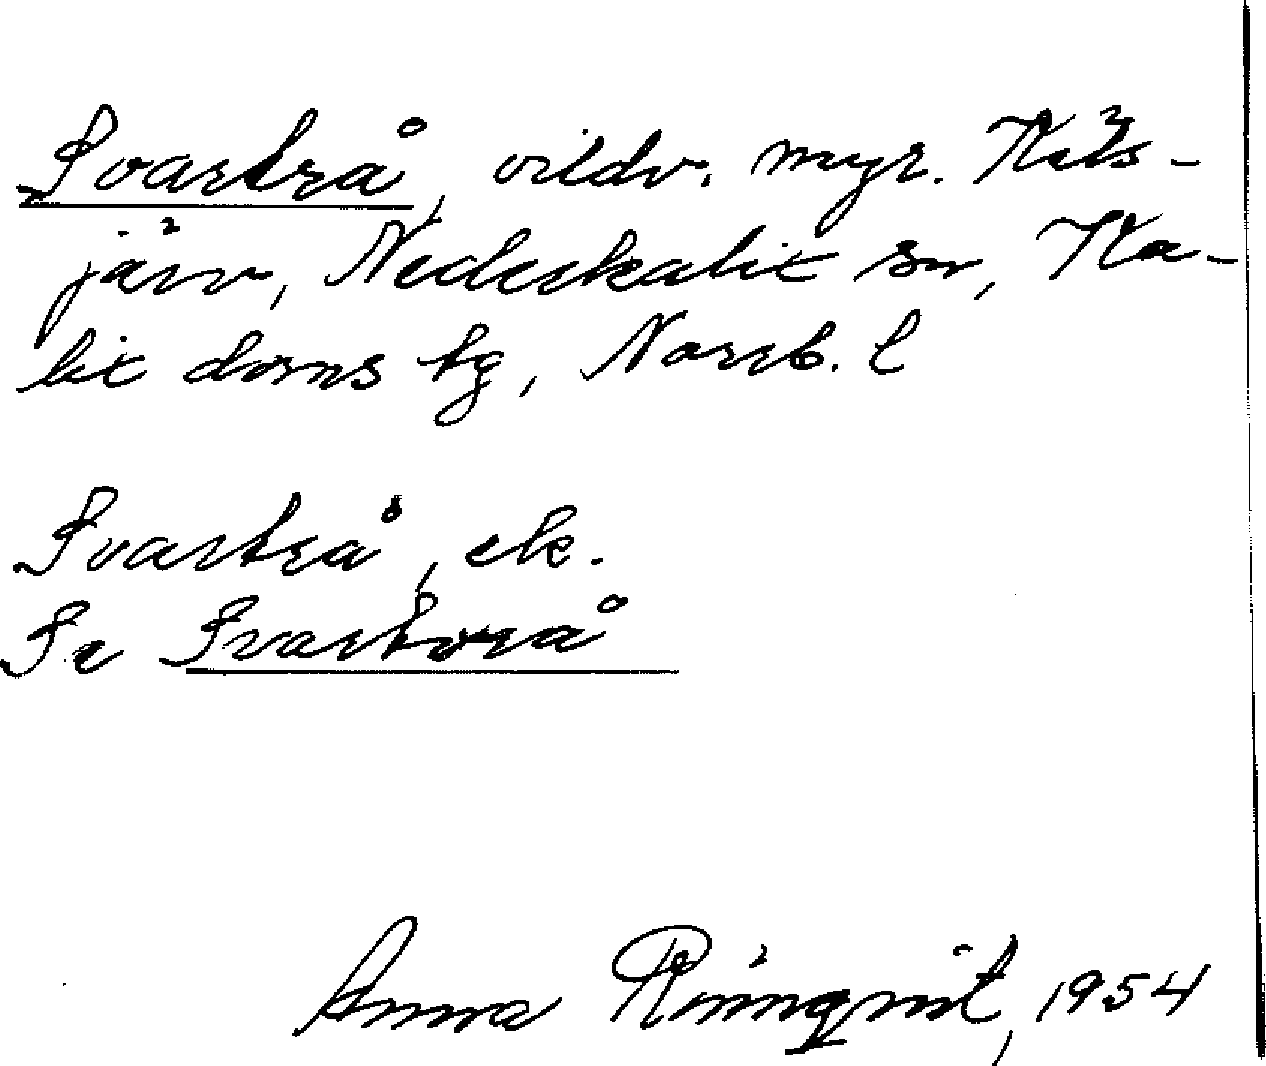 Svartrå, vildv. myr. Räts-
järv, Nederkalix sn, Ka-
lix doms tg, Norrb. l
Svartrå, ek.
Se Svartvrå
Anna Rönnqvist, 1954